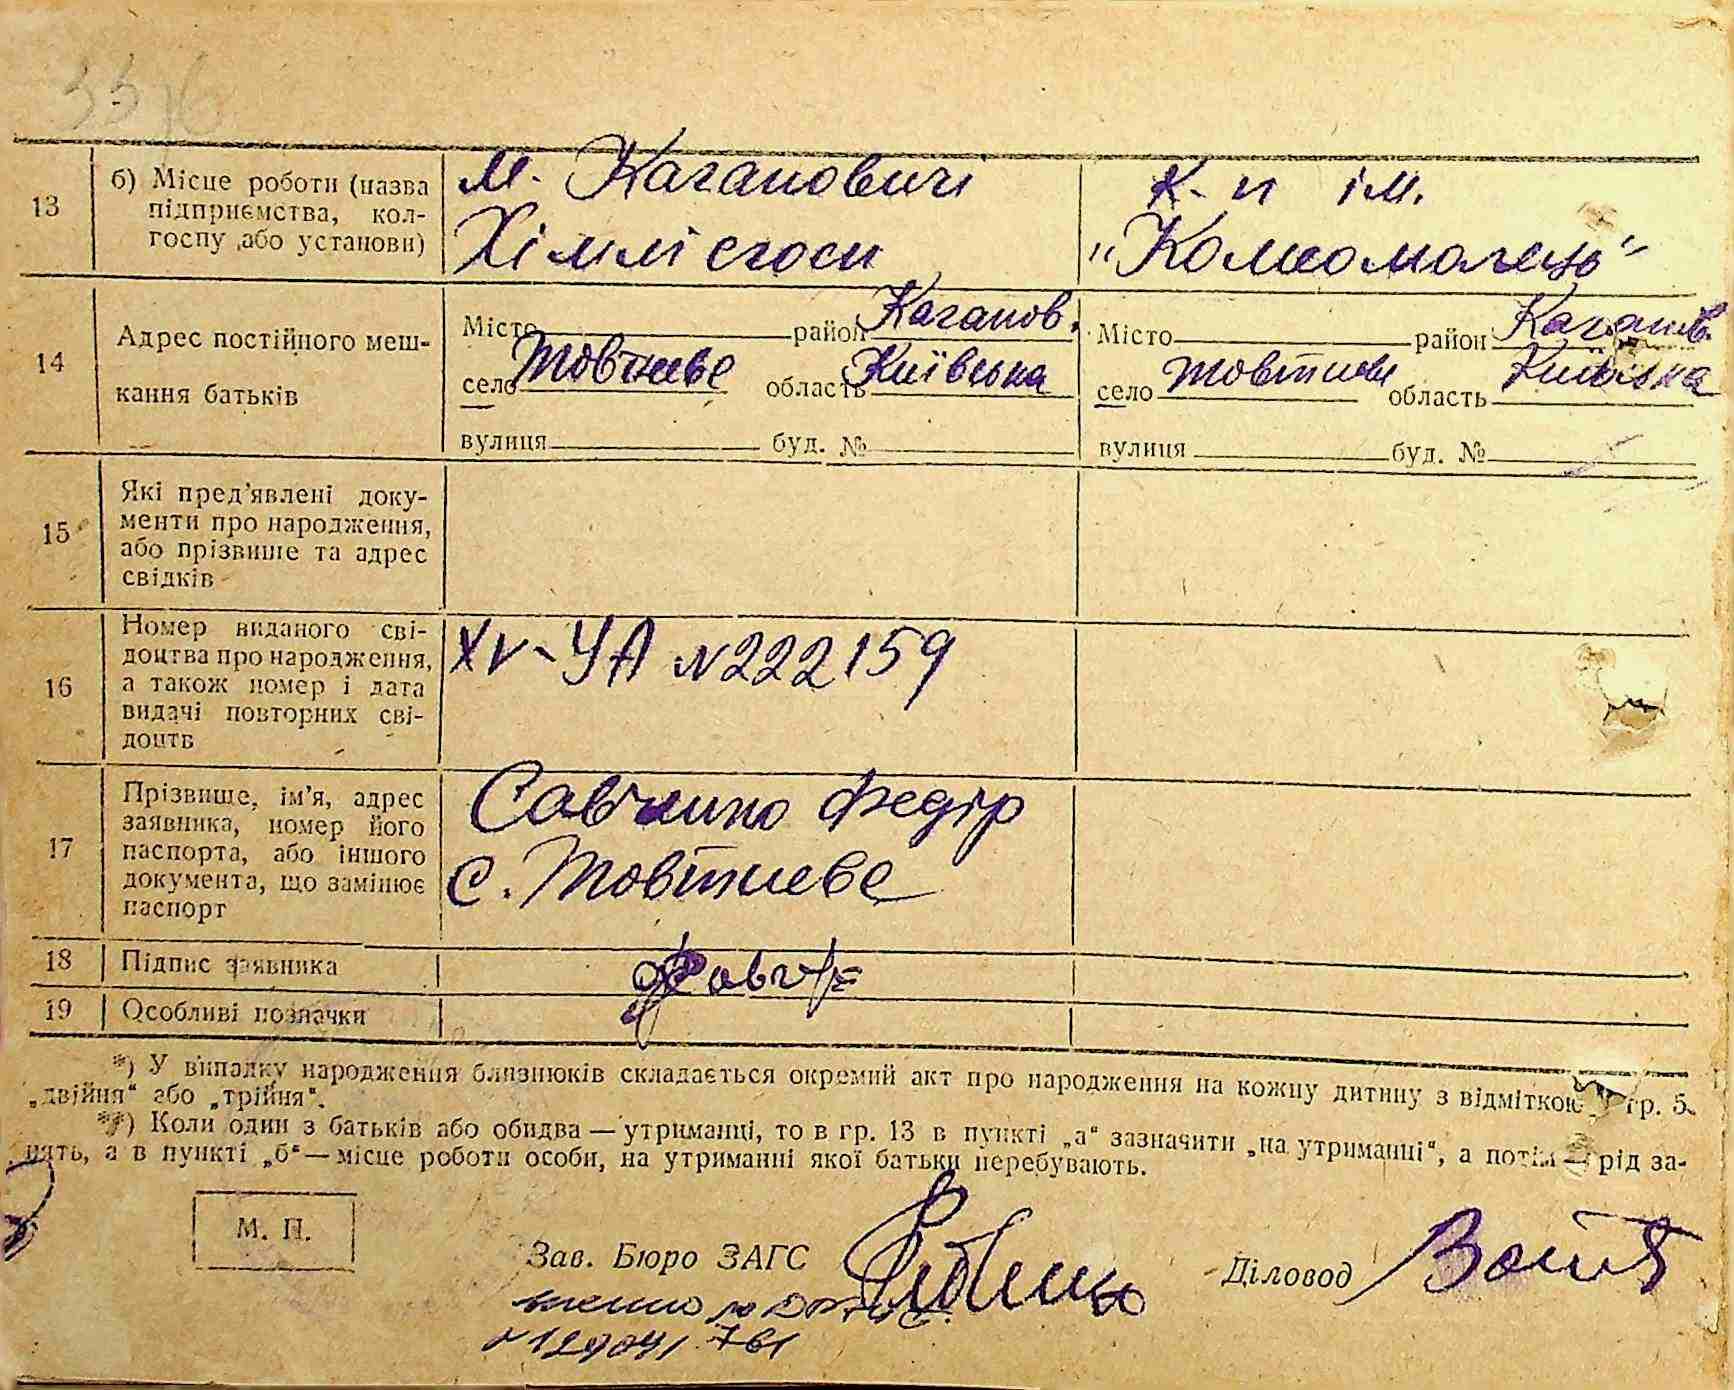 3376
13 б) Місце роботи (назва підприємства, кол-госпу або установи)
м. Кагановичі
Хімлісгосп
К-п ім.
"Комсомолець"
14 Адрес постійного меш-
кання батьків
Місто район Каганов.
село Жовтневе область Київська
вулиця буд. №
Місто район Каганов.
село Жовтневе область Київська
вулиця буд. №
15 Які пред'явлені доку-
менти про народження,
або прізвище та адрес
свідків
16 Номер виданого сві-
доцтва про народження,
а також номер і дата
видачі повторних сві-
доцтв
XV-УА №222159
17 Прізвище, ім'я, адрес
заявника, номер його
паспорта, або іншого
документа, що замінює
паспорт
Савченко Федір
с. Жовтневе
18 Підпис заявника
19 Особливі позначки
*) У випадку народження близнюків складається окремий акт про народження на кожну дитину з відміткою у гр. 5.
„двійня“ або „трійня“.
**) Коли один з батьків або обидва — утриманці, то в гр. 13 в пункті „а“ зазначити „на утриманні“, а потім — рід за-
нять, а в пункті „б“ — місце роботи особи, на утриманні якої батьки перебувають.
М. П.
Зав. Бюро ЗАГС
Діловод